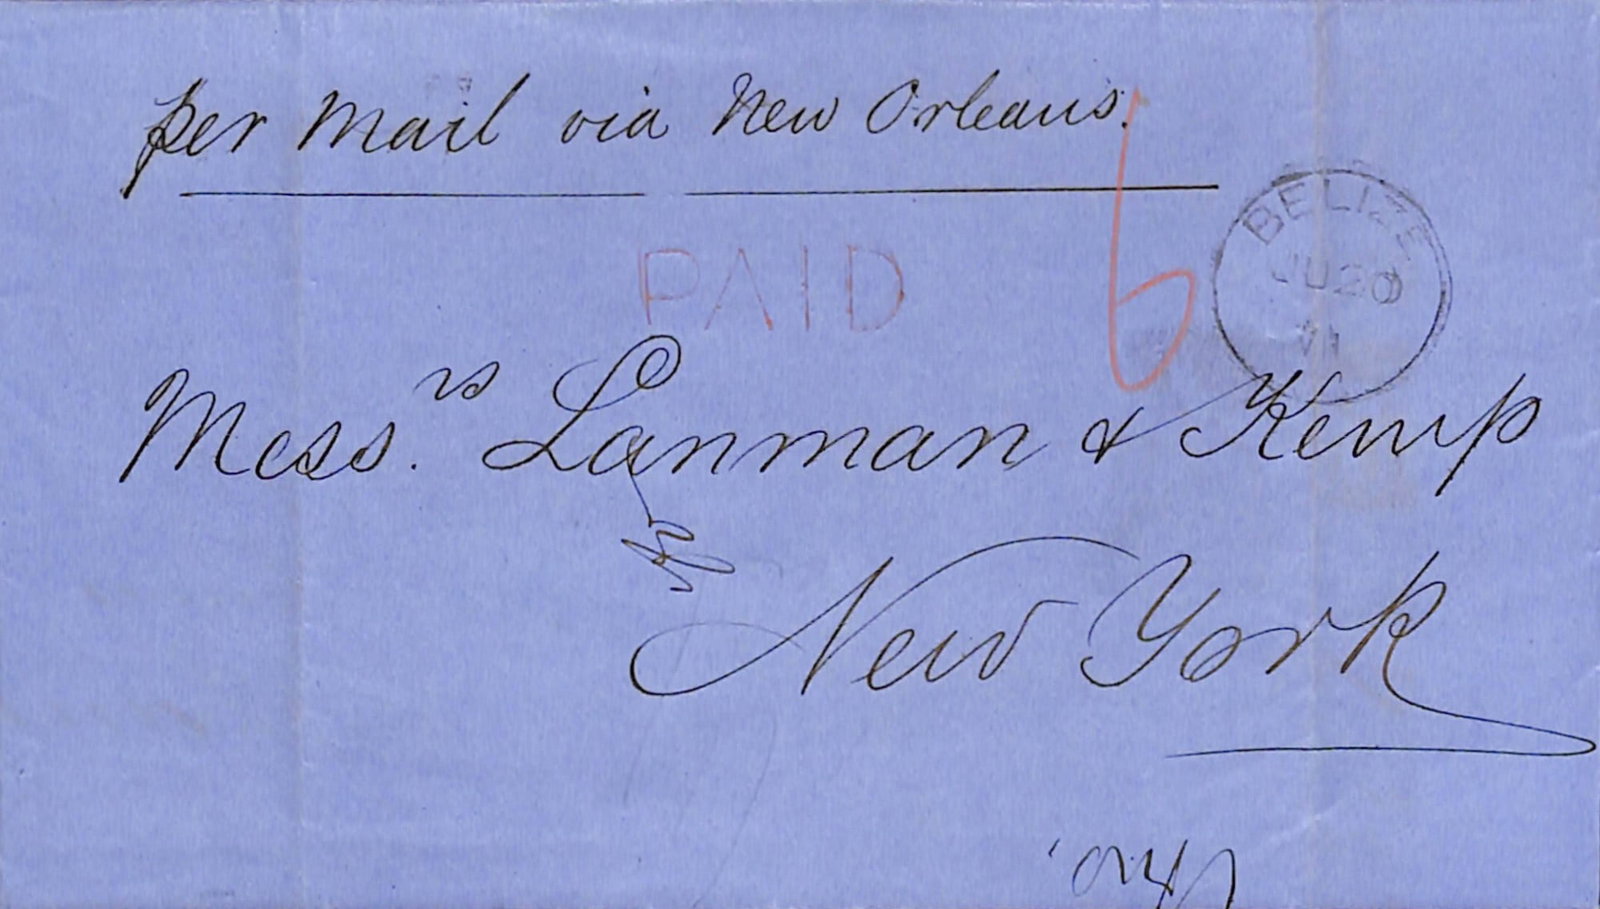 per Mail via New Orleans.
PAID
6
BELIZE
JU 20
71
Mess.rs Lanman & Kemp
New York